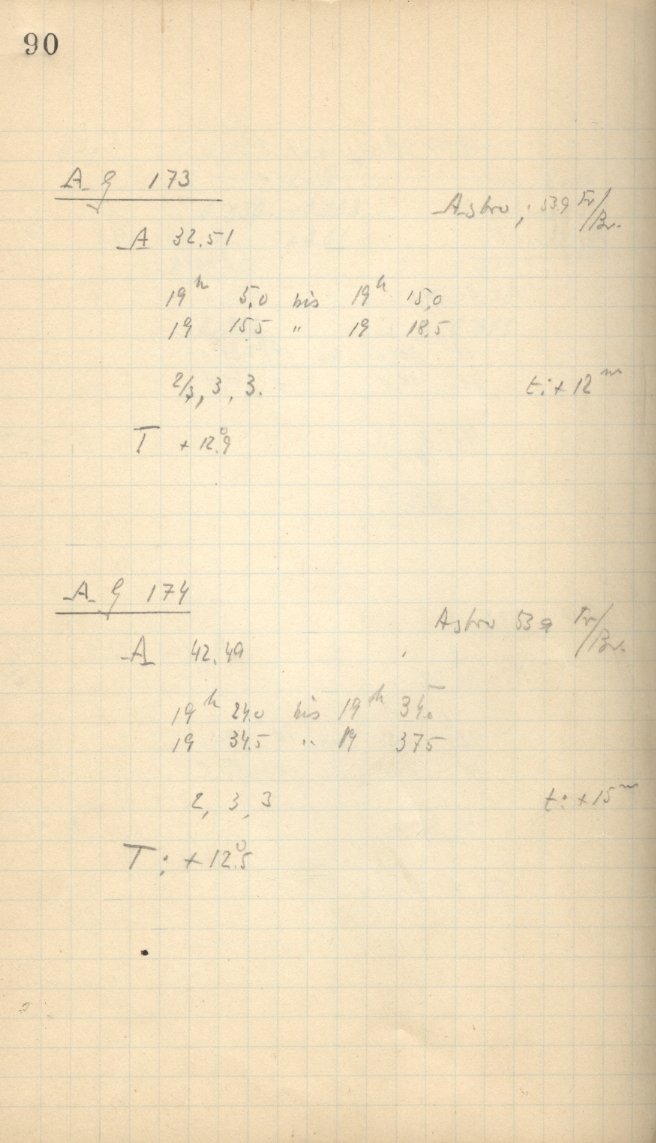 90
A G 173
Astro ; 53.9 Fr/Br.
A 32.51
19h 5,0 bis 19h 15,0
19 15.5 " 19 18.5
2/3, 3, 3.
t: + 12m
T + 12°.9
A G 174
Astro 53 9 Fr/Br.
A 42.49
19h 24.0 bis 19h 34.
19 34.5 " 19 37.5
2, 3, 3
t: + 15m
T: + 12°.5